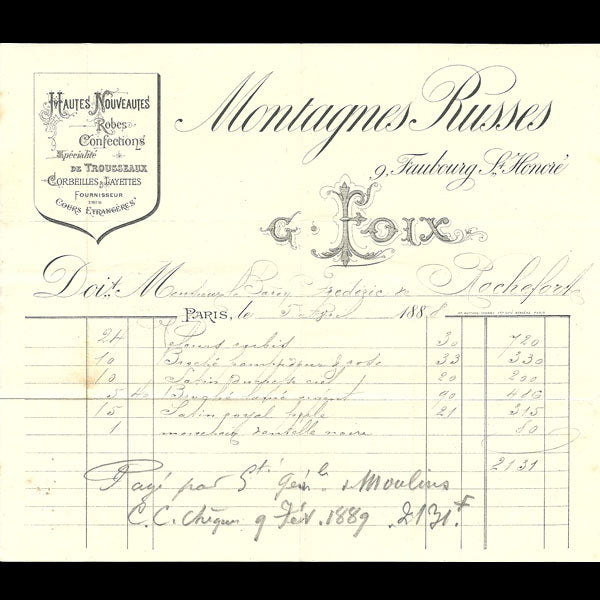 HAUTES NOUVEAUTÉS
Robes
Confections
Spécialité
DE TROUSSEAUX
CORBEILLES & LAYETTES
FOURNISSEUR
DES
COURS ÉTRANGÈRES
Montagnes Russes
9, Faubourg St. Honoré
G. FOIX
Doit, M Monsieur le Baron Frédéric de Rochefort
PARIS, le 5 1888
24 Velours 30 720
10 Broché pompadour & rose 33 330
10 Satin ciel 20 200
5 Broché lamé argent 90 416
15 Satin royal 21 315
1 morceau dentelle noire 80
2131
Payé par Sté Génle de Moulins
C. C. Chèque 9 Fév. 1889 2131 f